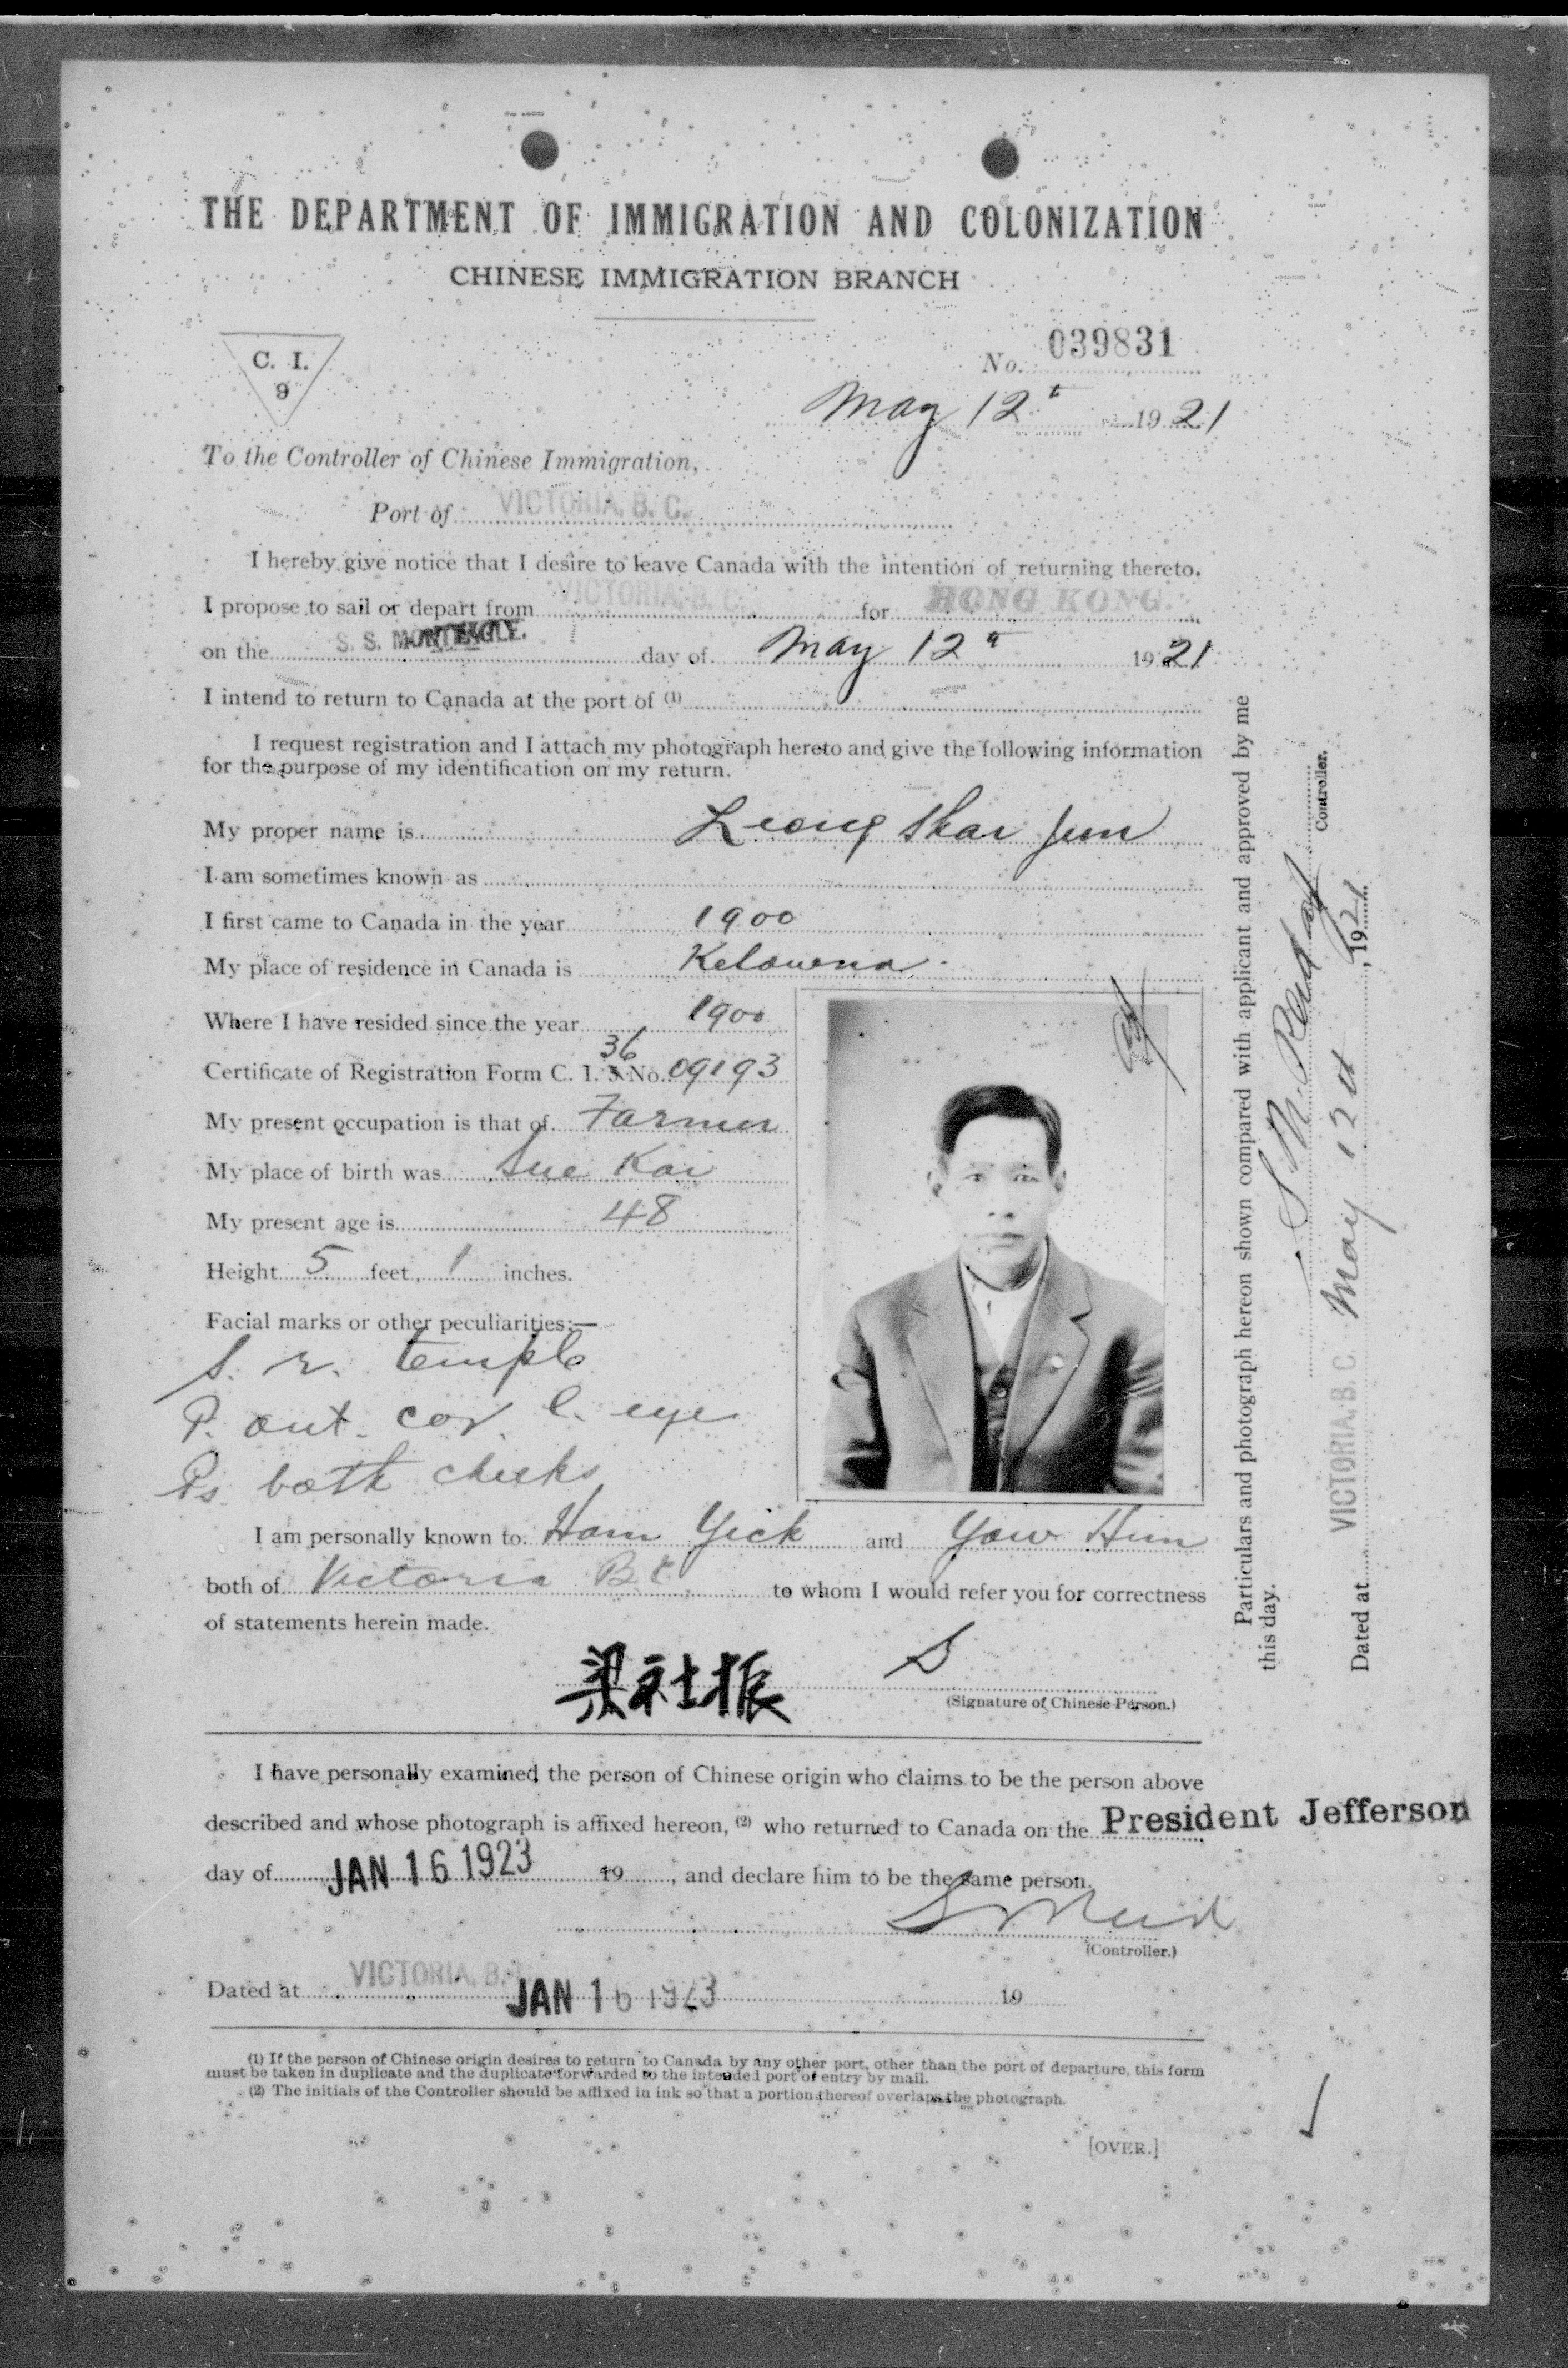 THE DEPARTMENT OF IMMIGRATION AND COLONIZATION
CHINESE IMMIGRATION BRANCH
C. I.
9
No. 039831
May 12t 1921
To the Controller of Chinese Immigration,
Port of VICTORIA, B. C.
I hereby give notice that I desire to leave Canada with the intention of returning thereto.
I propose to sail or depart from VICTORIA, B. C. for HONG KONG.
on the S. S. MONTEAGLE. day of May 12 1921
I intend to return to Canada at the port of (1)
I request registration and I attach my photograph hereto and give the following information
for the purpose of my identification on my return.
My proper name is Leong Shar Jun
I am sometimes known as
I first came to Canada in the year 1900
My place of residence in Canada is Kelowna
Where I have resided since the year 1900
36
Certificate of Registration Form C. I. 5 No. 09193
My present occupation is that of Farmer
My place of birth was Sue Kai
My present age is 48
Height 5 feet 1 inches.
Facial marks or other peculiarities:—
S. r. temple
P. out. cor. l. eye
Ps both cheeks
I am personally known to Ham Yick and Yow Him
both of Victoria BC to whom I would refer you for correctness
of statements herein made.
梁社振 S
(Signature of Chinese Person.)
I have personally examined the person of Chinese origin who claims to be the person above
described and whose photograph is affixed hereon, (2) who returned to Canada on the President Jefferson
day of JAN 16 1923 19 , and declare him to be the same person.
(Controller.)
Dated at VICTORIA, B. JAN 16 1923 19
(1) If the person of Chinese origin desires to return to Canada by any other port, other than the port of departure, this form
must be taken in duplicate and the duplicate forwarded to the intended port of entry by mail.
(2) The initials of the Controller should be affixed in ink so that a portion thereof overlaps the photograph.
[OVER.]
Particulars and photograph hereon shown compared with applicant and approved by me
this day.
Controller.
Dated at VICTORIA, B. C. May 12th, 1921